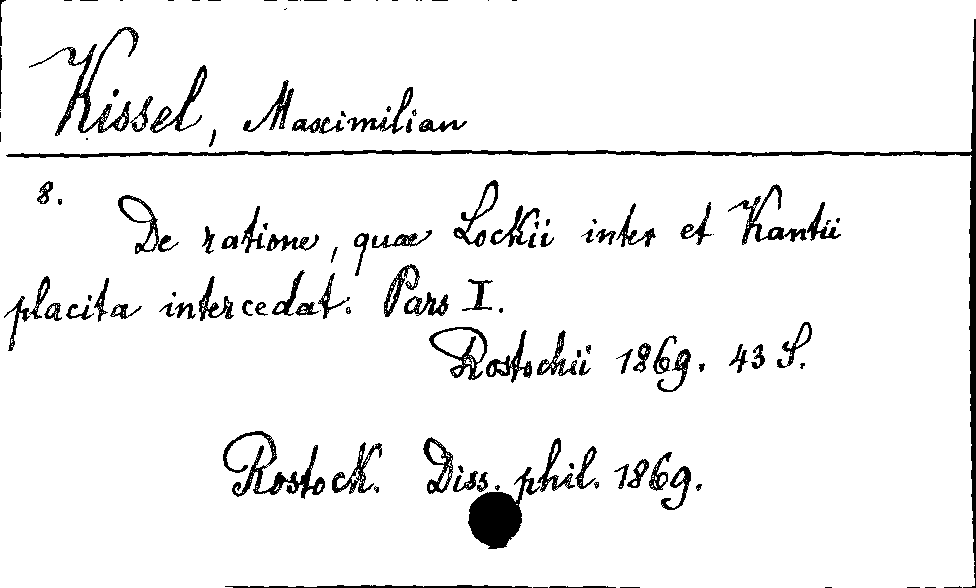 Kissel, Maximilian
8.
De ratione, quae Lockii inter et Kantii
placita intercedat. Pars I.
Rostochii 1869. 43 S.
Rostock. Diss. phil. 1869.